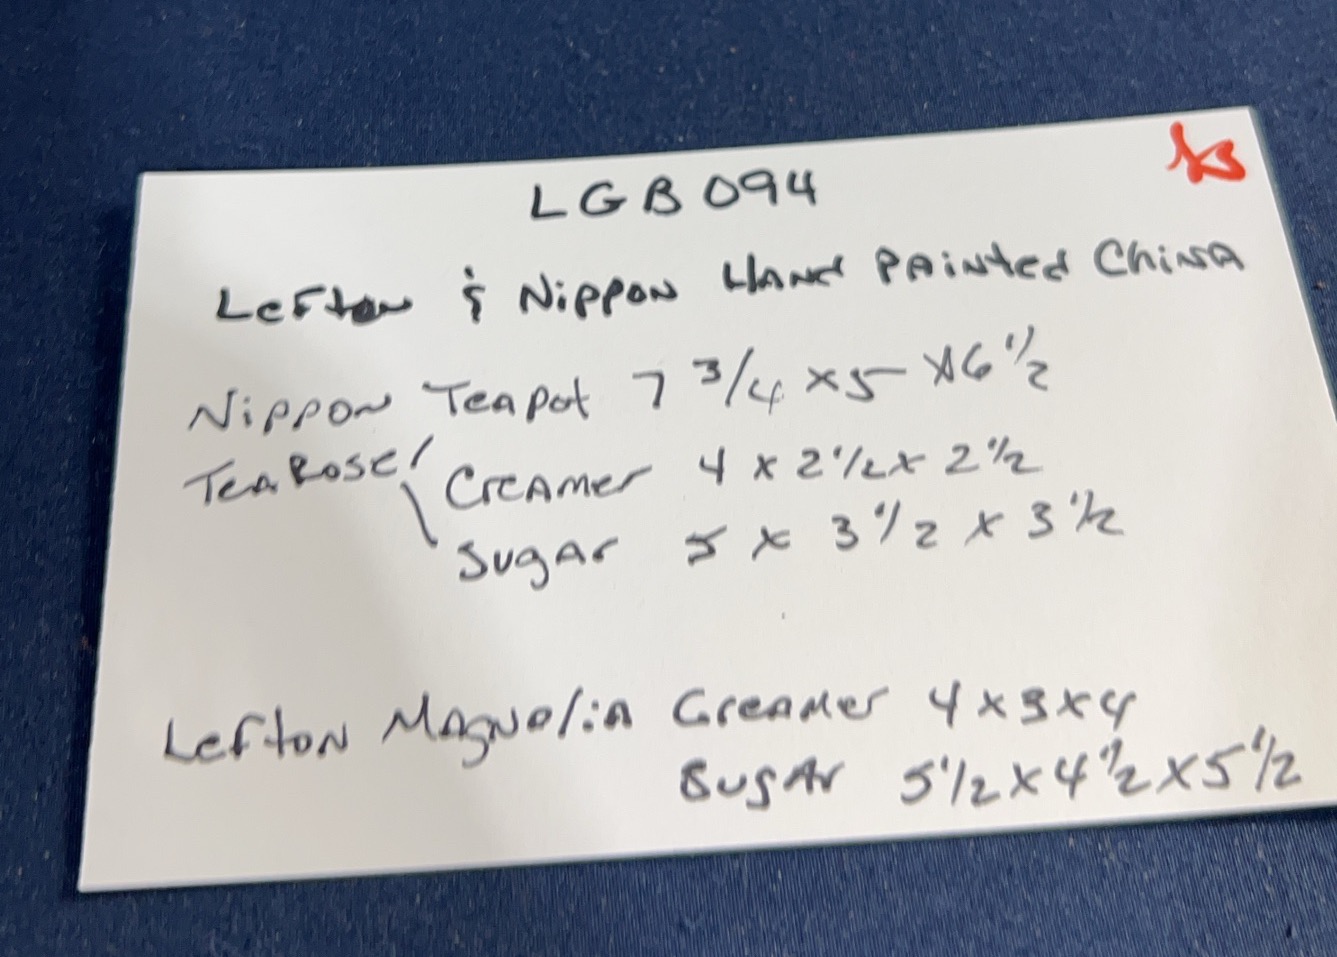 LGB 094
Lefton & Nippon Hand Painted China
Nippon Teapot 7 3/4 x 5 x 6 1/2
Tea Rose / Creamer 4 x 2 1/2 x 2 1/2
\ Sugar 5 x 3 1/2 x 3 1/2
Lefton Magnolia Creamer 4 x 3 x 4
Sugar 5 1/2 x 4 1/2 x 5 1/2